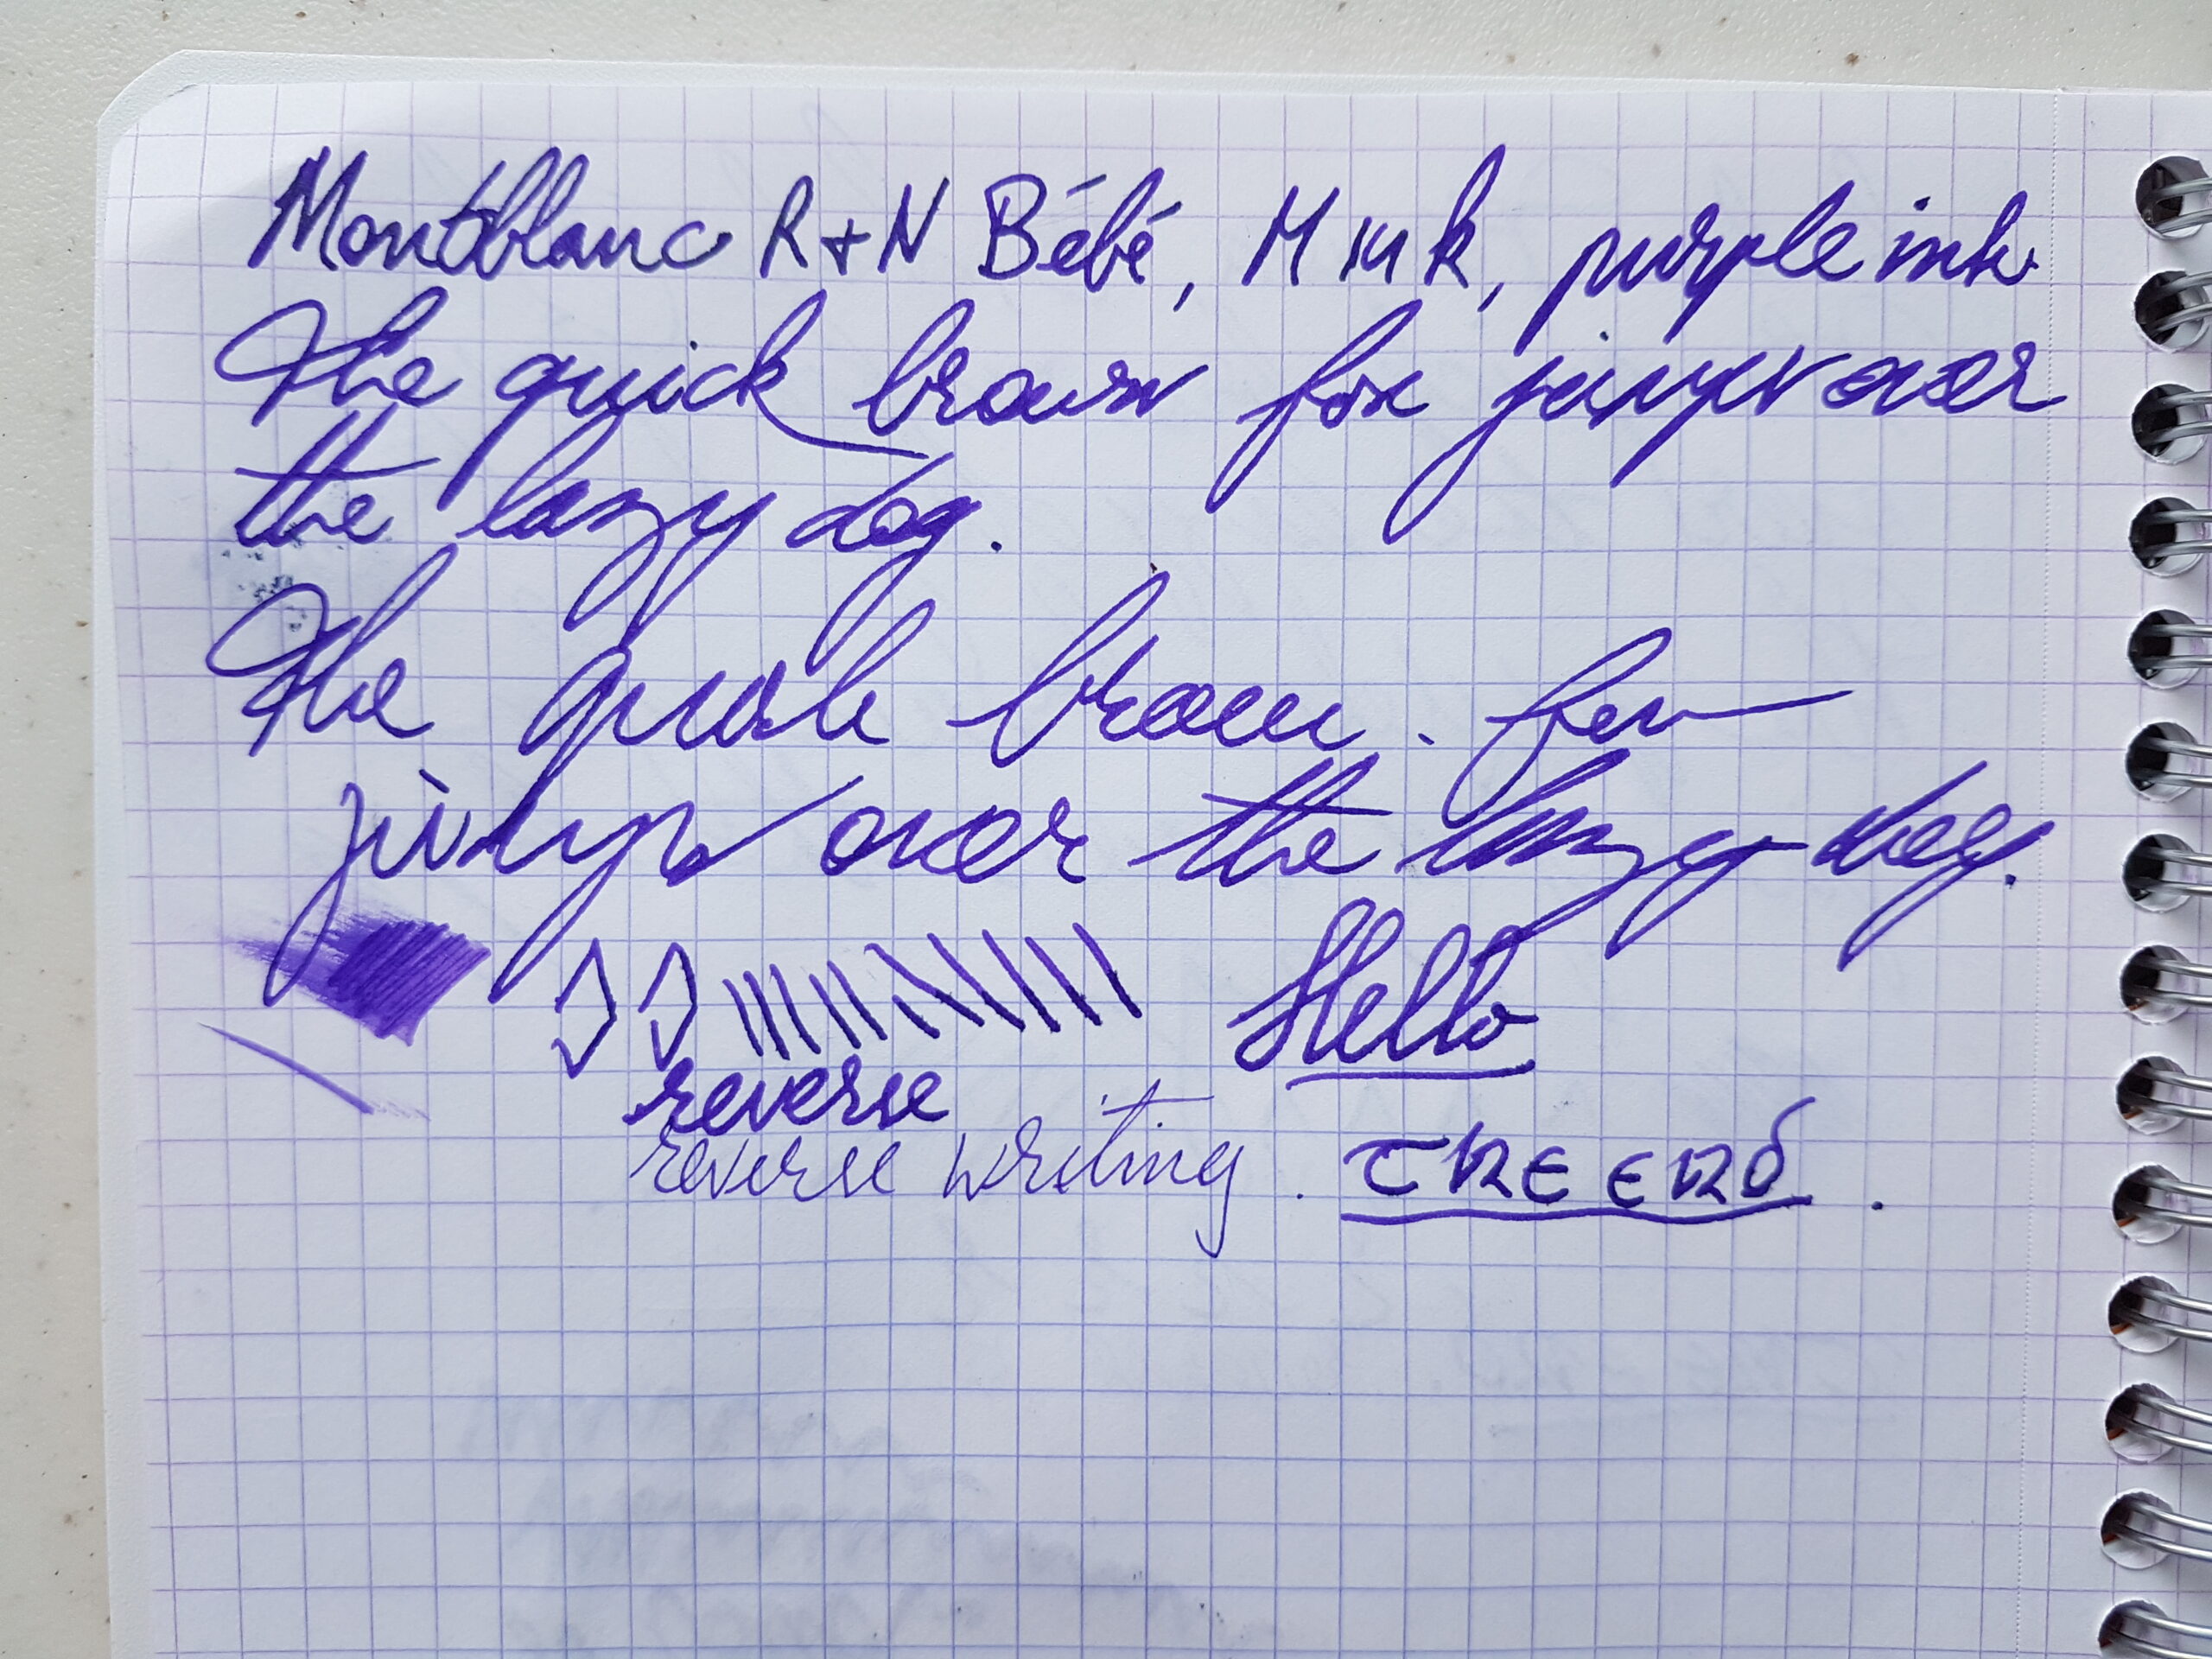 Montblanc R+N Bébé, M 14 k, purple ink
The quick brown fox jumps over
the lazy dog.
The quick brown fox
jumps over the lazy dog.
Hello
reverse
reverse writing. THE END.